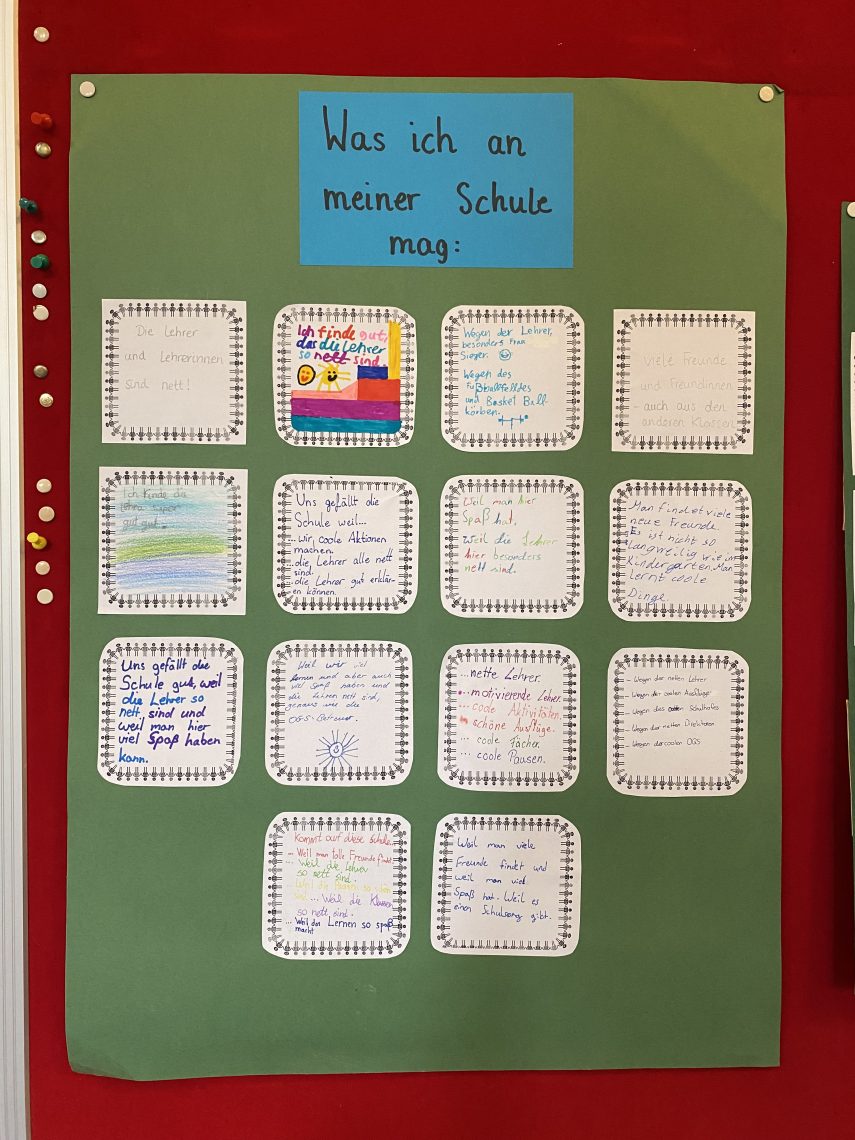 Was ich an
meiner Schule
mag:
Die Lehrer
und Lehrerinnen
sind nett!
Ich finde gut,
das die Lehrer
so nett sind.
Wegen der Lehrer,
besonders Frau
Sieger.
Wegen des
Fußballfeldes
und Basket Ball
körben.
Viele Freunde
und Freundinnen
- auch aus den
anderen Klassen
Ich finde die
super
gut gut.
Uns gefällt die
Schule weil...
...wir coole Aktionen
machen.
...die Lehrer alle nett
sind.
...die Lehrer gut erklär-
en können.
Weil man hier
Spaß hat.
Weil die Lehrer
hier besonders
nett sind.
Man findet viele
neue Freunde.
Es ist nicht so
langweilig wie im
Kindergarten. Man
lernt coole
Dinge.
Uns gefällt die
Schule gut, weil
die Lehrer so
nett, sind und
weil man hier
viel Spaß haben
kann.
Weil wir viel
lernen und aber auch
viel Spaß haben und
die Lehrer nett sind,
genaus wie die
OGS-Betreuer.
...nette Lehrer.
...motivierende Lehrer.
...coole Aktivitäten.
schöne Ausflüge.
... coole Fächer.
... coole Pausen.
- Wegen der netten Lehrer
- Wegen der coolen Ausflüge
- Wegen des Schulhofes
- Wegen der netten Direktoren
- Wegen der coolen OGS
Kommt auf diese Schule...
... Weil man tolle Freunde findet.
... Weil die Lehrer
so nett sind.
... Weil die
sind. ... Weil die Klassen
so nett sind.
... Weil das Lernen so spaß
macht
Weil man viele
Freunde findet und
weil man viel
Spaß hat. Weil es
einen Schulsong gibt.